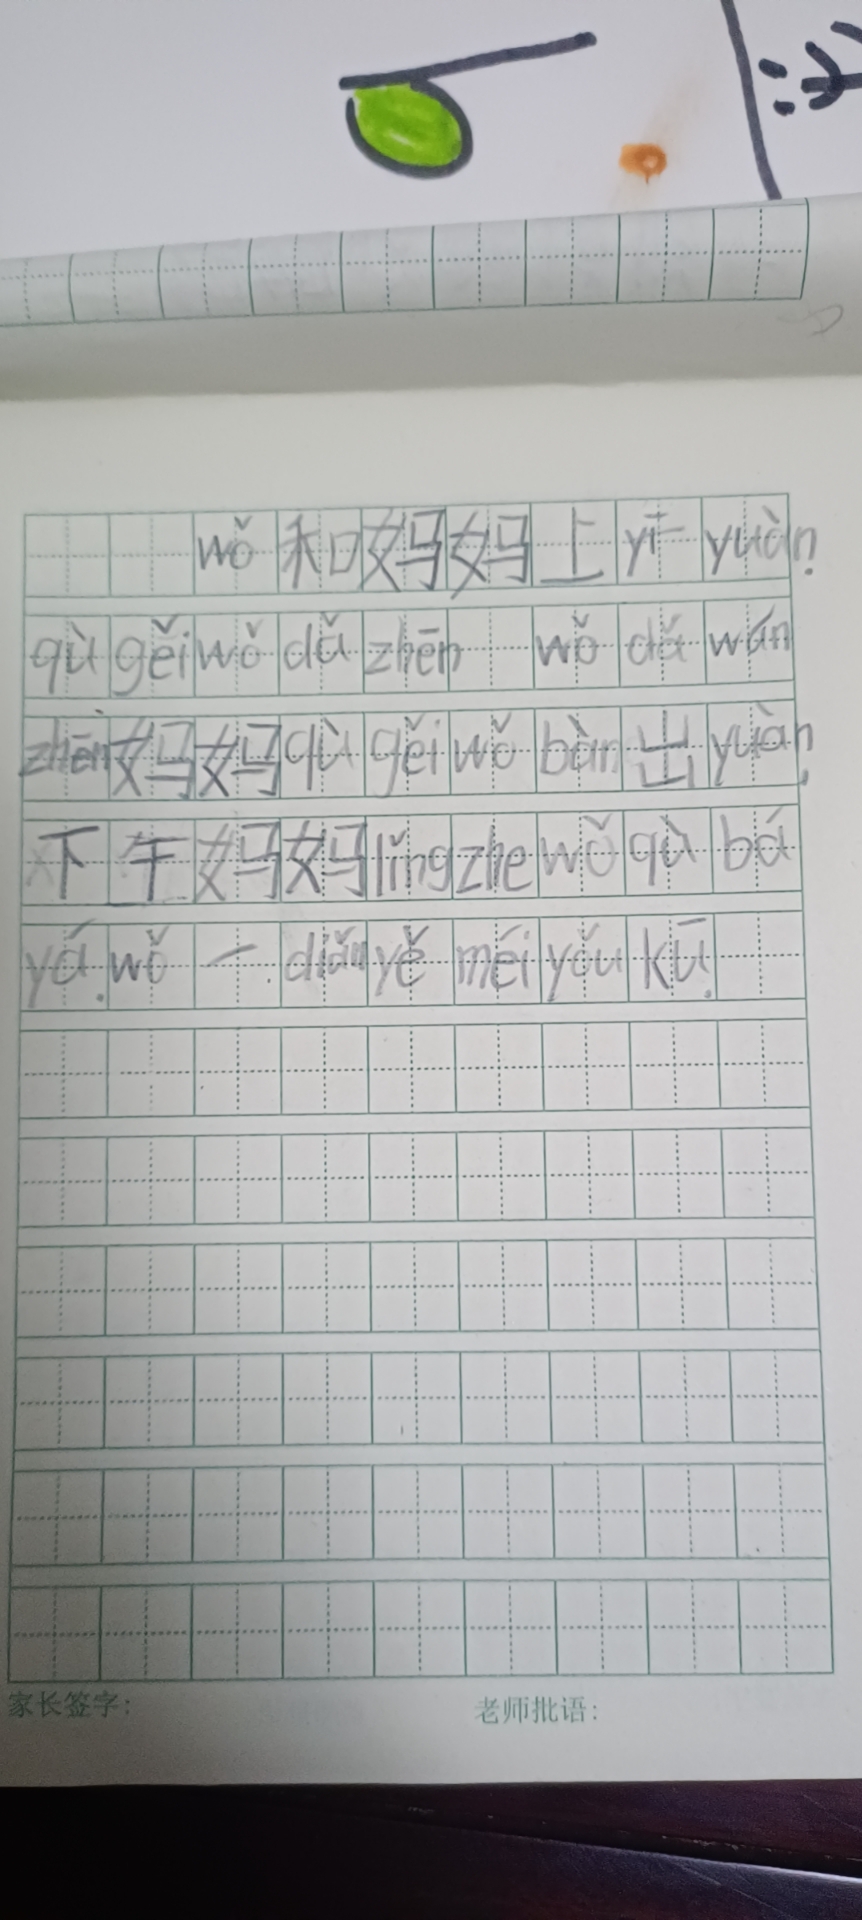 wǒ 和 妈 妈 上 yī yuàn,
qù gěi wǒ dǎ zhēn wǒ dǎ wán
zhēn 妈 妈 qù gěi wǒ bàn 出 yuàn,
下 午 妈 妈 lǐng zhe wǒ qù bá
yá. wǒ 一 diǎn yě méi yǒu kū.
家长签字: 老师批语: